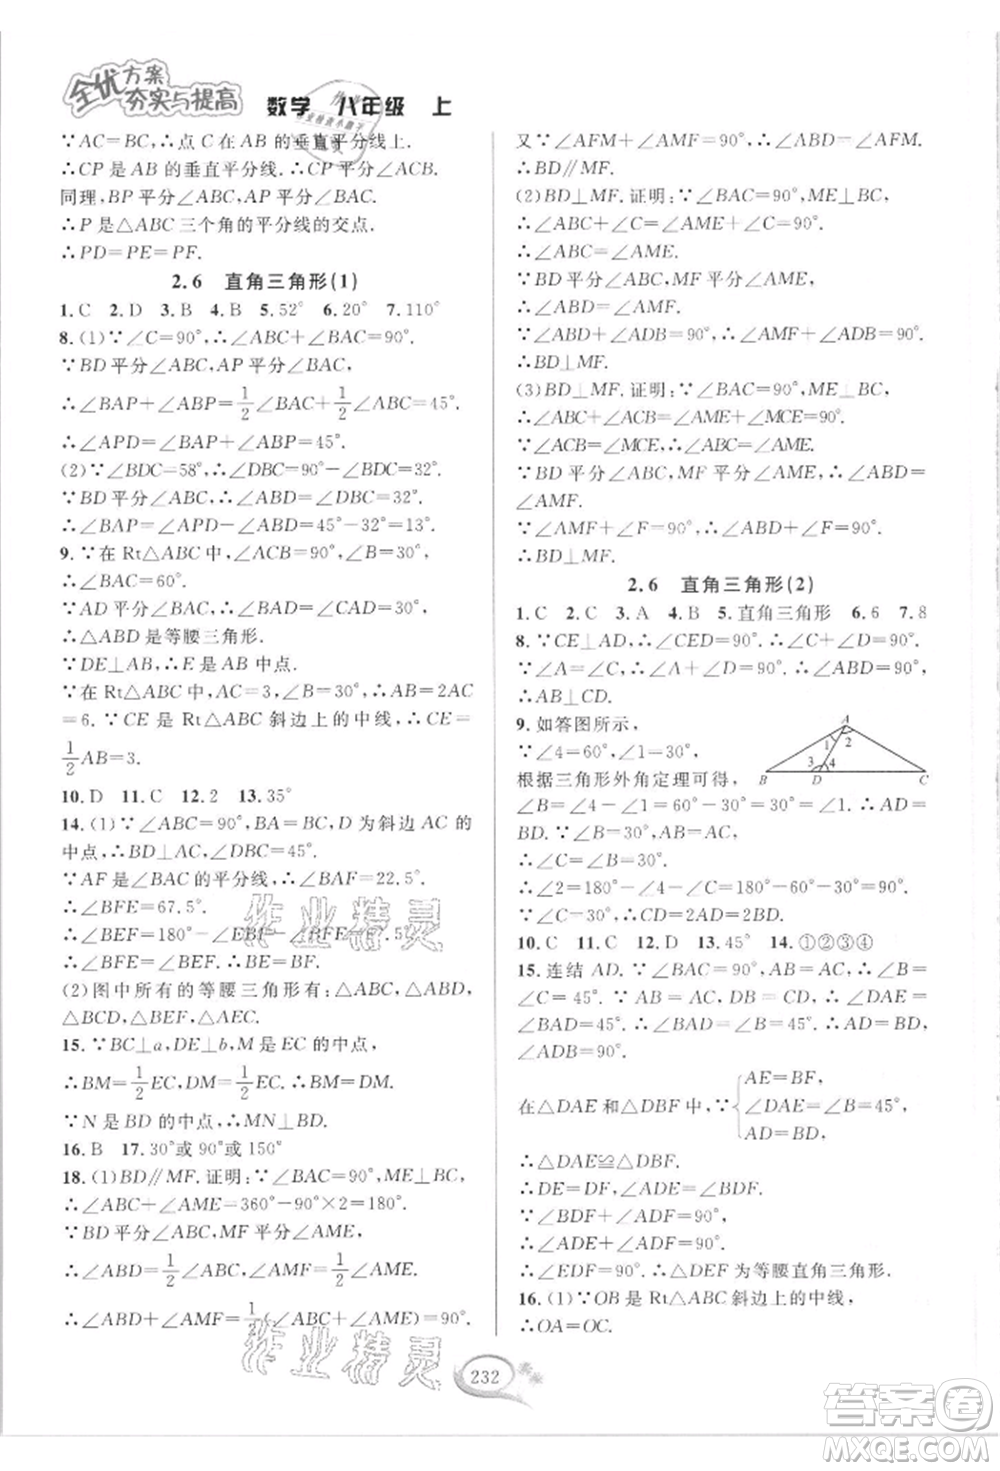 全优方案
夯实与提高 数学 八年级 上
∵AC=BC,∴点C在AB的垂直平分线上.
∴CP是AB的垂直平分线.∴CP平分∠ACB.
同理,BP平分∠ABC,AP平分∠BAC.
∴P是△ABC三个角的平分线的交点.
∴PD=PE=PF.
2.6 直角三角形(1)
1.C 2.D 3.B 4.B 5.52° 6.20° 7.110°
8.(1)∵∠C=90°,∴∠ABC+∠BAC=90°.
∵BD平分∠ABC,AP平分∠BAC,
∴∠BAP+∠ABP=1/2∠BAC+1/2∠ABC=45°.
∴∠APD=∠BAP+∠ABP=45°.
(2)∵∠BDC=58°,∴∠DBC=90°-∠BDC=32°.
∵BD平分∠ABC,∴∠ABP=∠DBC=32°.
∴∠BAP=∠APD-∠ABD=45°-32°=13°.
9.∵在Rt△ABC中,∠ACB=90°,∠B=30°,
∴∠BAC=60°.
∵AD平分∠BAC,∴∠BAD=∠CAD=30°.
∴△ABD是等腰三角形.
∵DE⊥AB,∴E是AB中点.
∵在Rt△ABC中,AC=3,∠B=30°,∴AB=2AC
=6.∵CE是Rt△ABC斜边上的中线,∴CE=
1/2AB=3.
10.D 11.C 12.2 13.35°
14.(1)∵∠ABC=90°,BA=BC,D为斜边AC的
中点,∴BD⊥AC,∠DBC=45°.
∵AF是∠BAC的平分线,∴∠BAF=22.5°.
∴∠BFE=67.5°.
∴∠BEF=180°-∠EBF-∠BFE=67.5°.
∴∠BFE=∠BEF.∴BE=BF.
(2)图中所有的等腰三角形有:△ABC,△ABD,
△BCD,△BEF,△AEC.
15.∵BC⊥a,DE⊥b,M是EC的中点,
∴BM=1/2EC,DM=1/2EC.∴BM=DM.
∵N是BD的中点,∴MN⊥BD.
16.B 17.30°或90°或150°
18.(1)BD∥MF.证明:∵∠BAC=90°,ME⊥BC,
∴∠ABC+∠AME=360°-90°×2=180°.
∵BD平分∠ABC,MF平分∠AME,
∴∠ABD=1/2∠ABC,∠AMF=1/2∠AME.
∴∠ABD+∠AMF=1/2(∠ABC+∠AME)=90°.
又∵∠AFM+∠AMF=90°,∴∠ABD=∠AFM.
∴BD∥MF.
(2)BD⊥MF.证明:∵∠BAC=90°,ME⊥BC,
∴∠ABC+∠C=∠AME+∠C=90°.
∴∠ABC=∠AME.
∵BD平分∠ABC,MF平分∠AME,
∴∠ABD=∠AMF.
∵∠ABD+∠ADB=90°,∴∠AMF+∠ADB=90°.
∴BD⊥MF.
(3)BD⊥MF.证明:∵∠BAC=90°,ME⊥BC,
∴∠ABC+∠ACB=∠AME+∠MCE=90°.
∵∠ACB=∠MCE,∴∠ABC=∠AME.
∵BD平分∠ABC,MF平分∠AME,∴∠ABD=
∠AMF.
∵∠AMF+∠F=90°,∴∠ABD+∠F=90°.
∴BD⊥MF.
2.6 直角三角形(2)
1.C 2.C 3.A 4.B 5.直角三角形 6.6 7.8
8.∵CE⊥AD,∴∠CED=90°.∴∠C+∠D=90°.
∵∠A=∠C,∴∠A+∠D=90°.∴∠ABD=90°.
∴AB⊥CD.
9.如答图所示,
∵∠4=60°,∠B=30°,
根据三角形外角定理可得,
∠B=∠4-∠1=60°-30°=30°=∠1.∴AD=
BD.∵∠B=30°,AB=AC,
∴∠C=∠B=30°.
∴∠2=180°-∠4-∠C=180°-60°-30°=90°.
∵∠C=30°,∴CD=2AD=2BD.
A 1 2 3 4 B D C
10.C 11.C 12.D 13.45° 14.①②③④
15.连结AD.∵∠BAC=90°,AB=AC,∴∠B=
∠C=45°.∵∠BAC=90°,BD=CD,∴AD=BD,
∠BAD=45°,∠DAC=45°,∠ADB=90°.∴∠1+
∠ADB=90°.
在△DAE和△DBF中,∵{AE=BF,
∠DAE=∠B=45°,
AD=BD,
∴△DAE≌△DBF.
∴DE=DF,∠ADE=∠BDF.
∵∠BDF+∠ADF=90°,
∴∠ADE+∠ADF=90°.
∴∠EDF=90°.∴△DEF为等腰直角三角形.
16.(1)∵OB是Rt△ABC斜边上的中线,
∴OA=OC.
232
作业精灵
作业精灵
答案圈
MXQE.COM